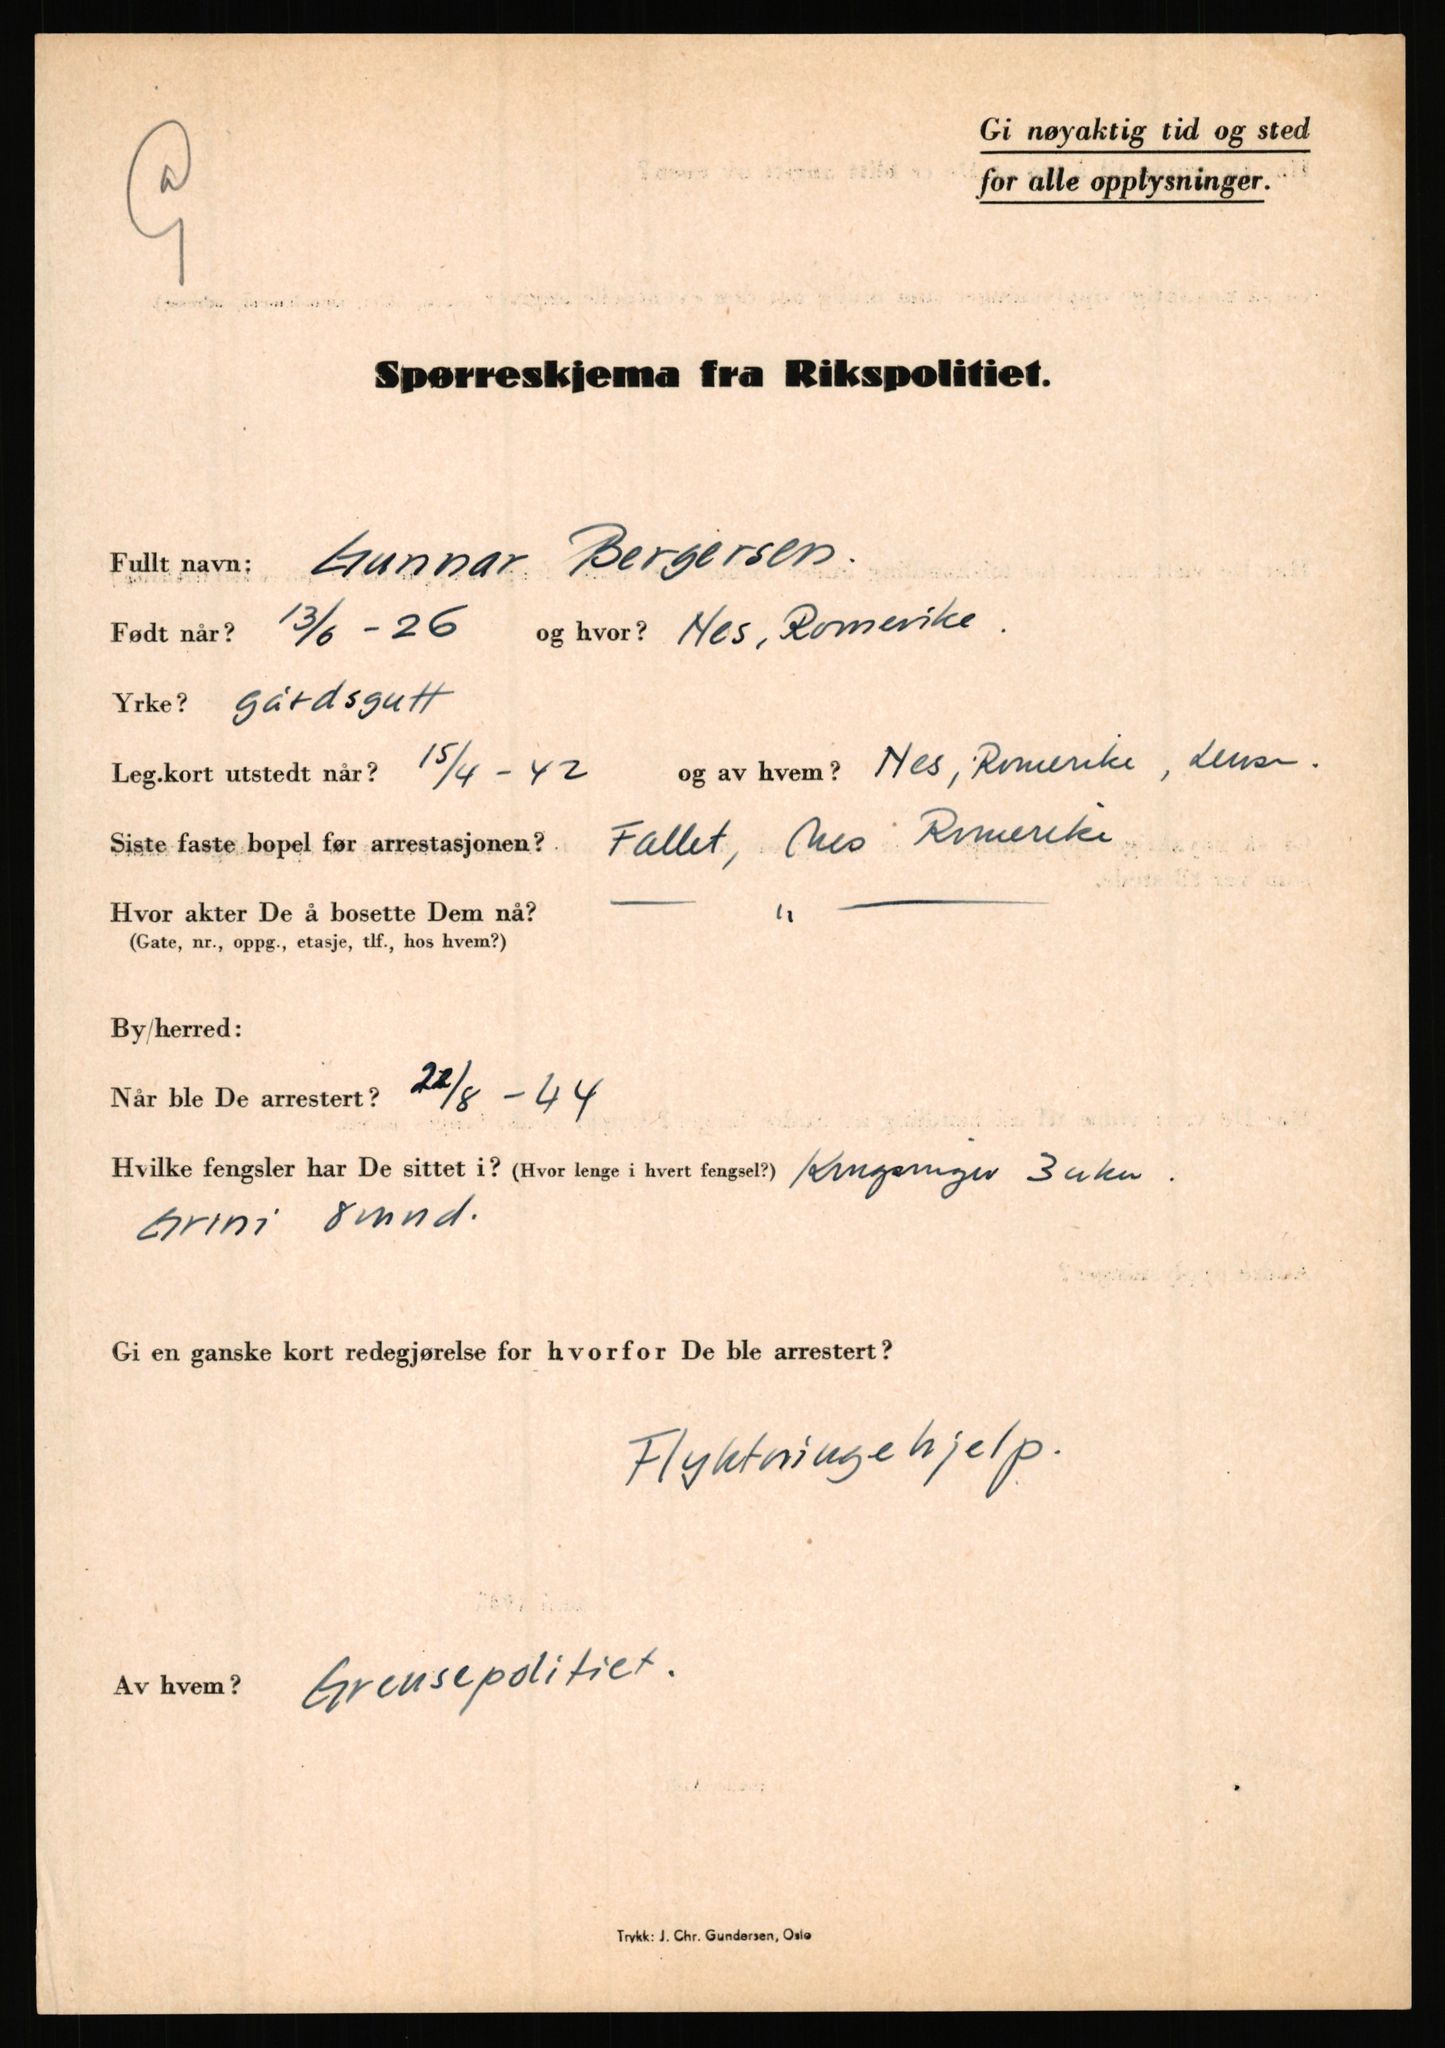 G
Gi nøyaktig tid og sted
for alle opplysninger.
Spørreskjema fra Rikspolitiet.
Fullt navn: Gunnar Bergersen.
Født når? 13/6 - 26 og hvor? Nes, Romerike.
Yrke? gårdsgutt
Leg.kort utstedt når? 15/4 - 42 og av hvem? Nes, Romerike,
Siste faste bopel før arrestasjonen? Fallet, Nes Romerike
Hvor akter De å bosette Dem nå? — " —
(Gate, nr., oppg., etasje, tlf., hos hvem?)
By/herred:
Når ble De arrestert? 22/8 - 44
Hvilke fengsler har De sittet i? (Hvor lenge i hvert fengsel?) Kongsvinger 3 uker.
Grini 8 mnd.
Gi en ganske kort redegjørelse for hvorfor De ble arrestert?
Flyktningehjelp.
Av hvem? Grensepolitiet.
Trykk: J. Chr. Gundersen, Oslo